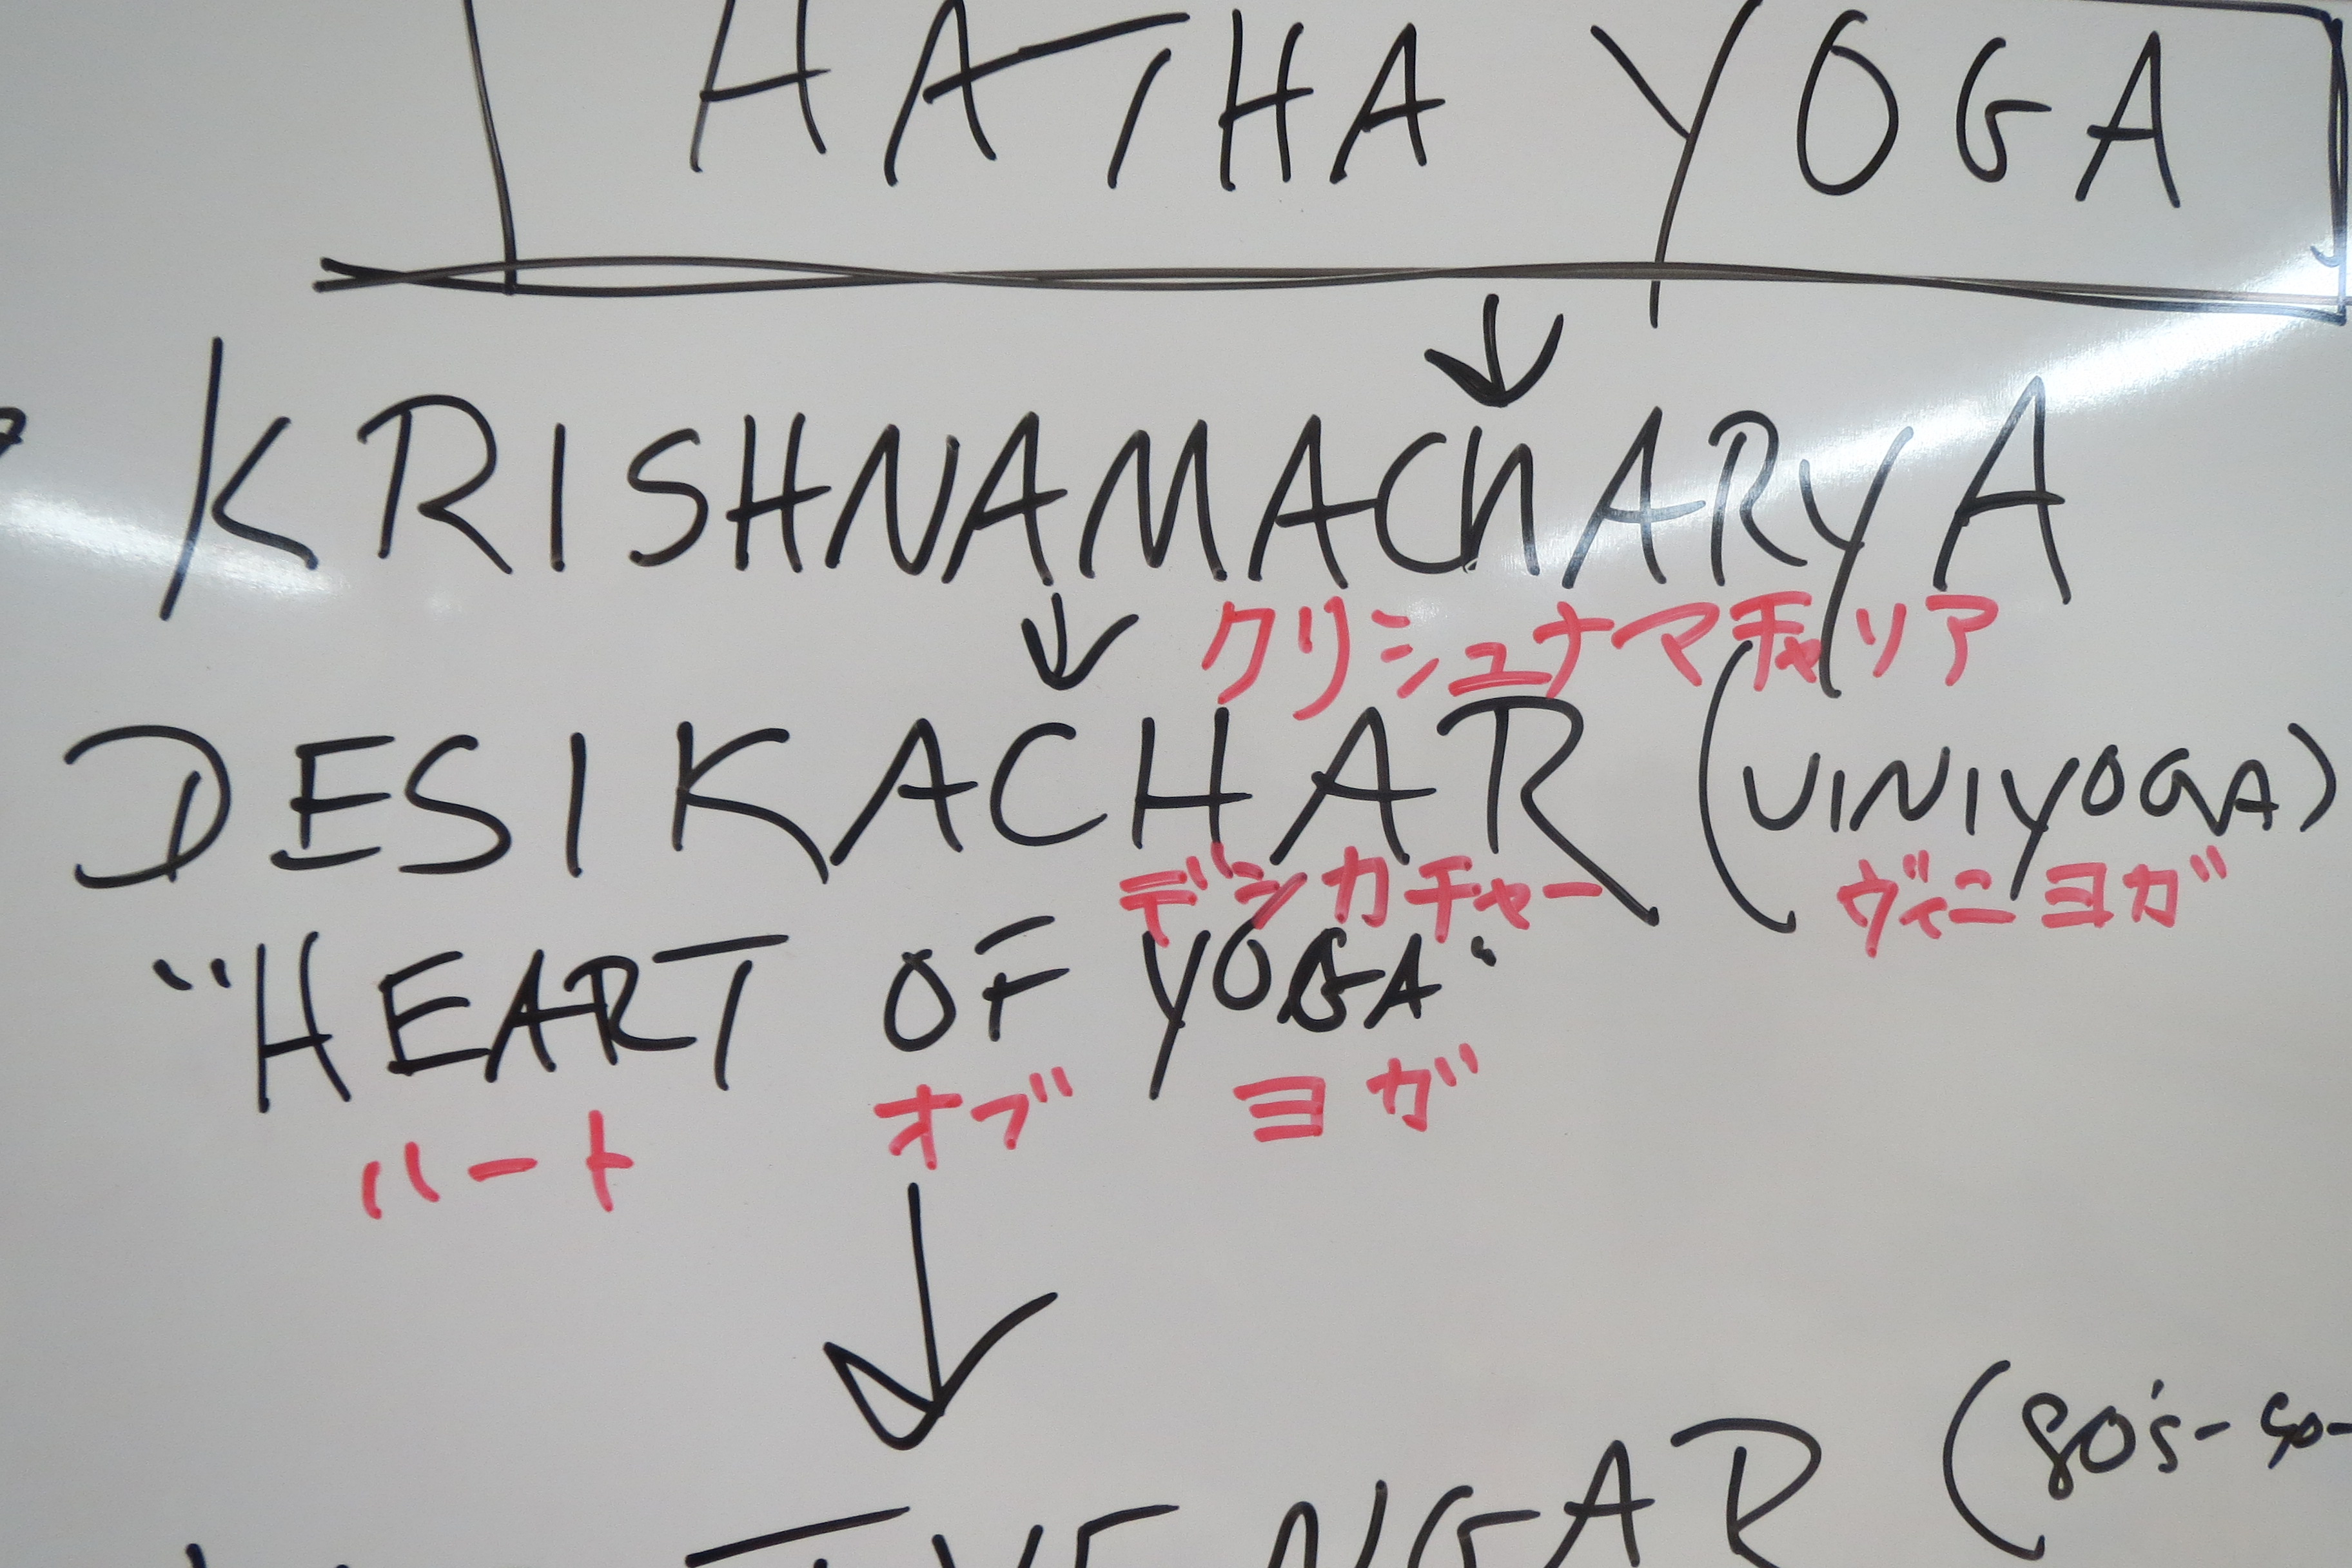 HATHA YOGA
KRISHNAMACHARYA
クリシュナマチャリア
DESIKACHAR (VINIYOGA)
デシカチャー ヴィニヨガ
"HEART OF YOGA"
ハート オブ ヨガ
(80's-